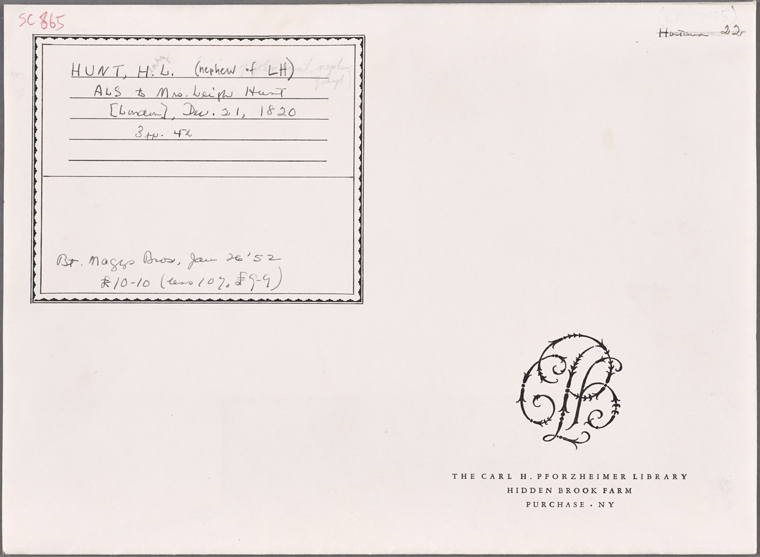 SC 865
22
HUNT, H. L. (nephew of LH)
ALS to Mrs. Leigh Hunt
[London], Dec. 21, 1820
3 pp. 4to
Bt. Maggs Bros, Jan 26 '52
£10-10 (less 10%, £9-9)
THE CARL H. PFORZHEIMER LIBRARY
HIDDEN BROOK FARM
PURCHASE · NY